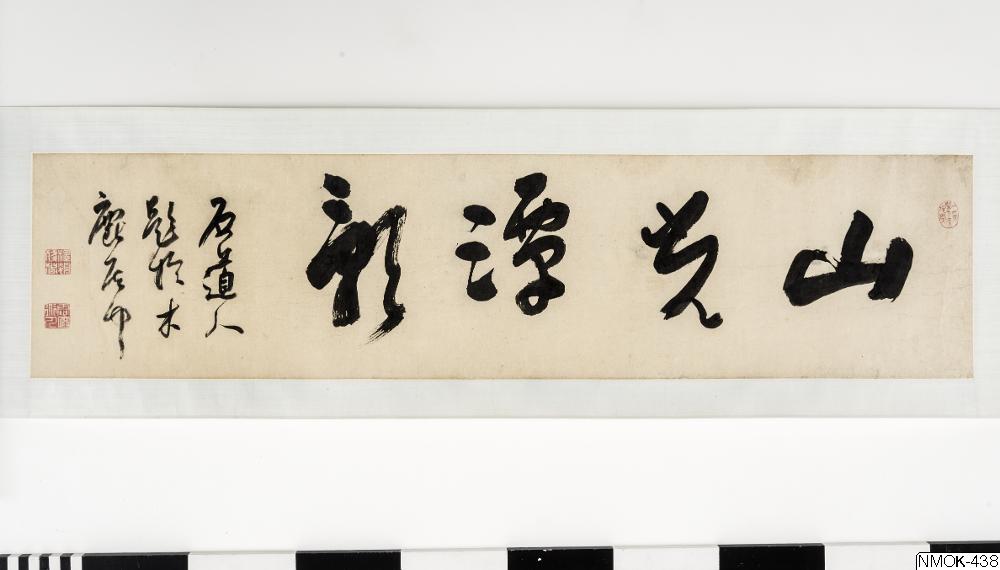 山光潭影
石道人
題於木
龕居中
NMOK-438